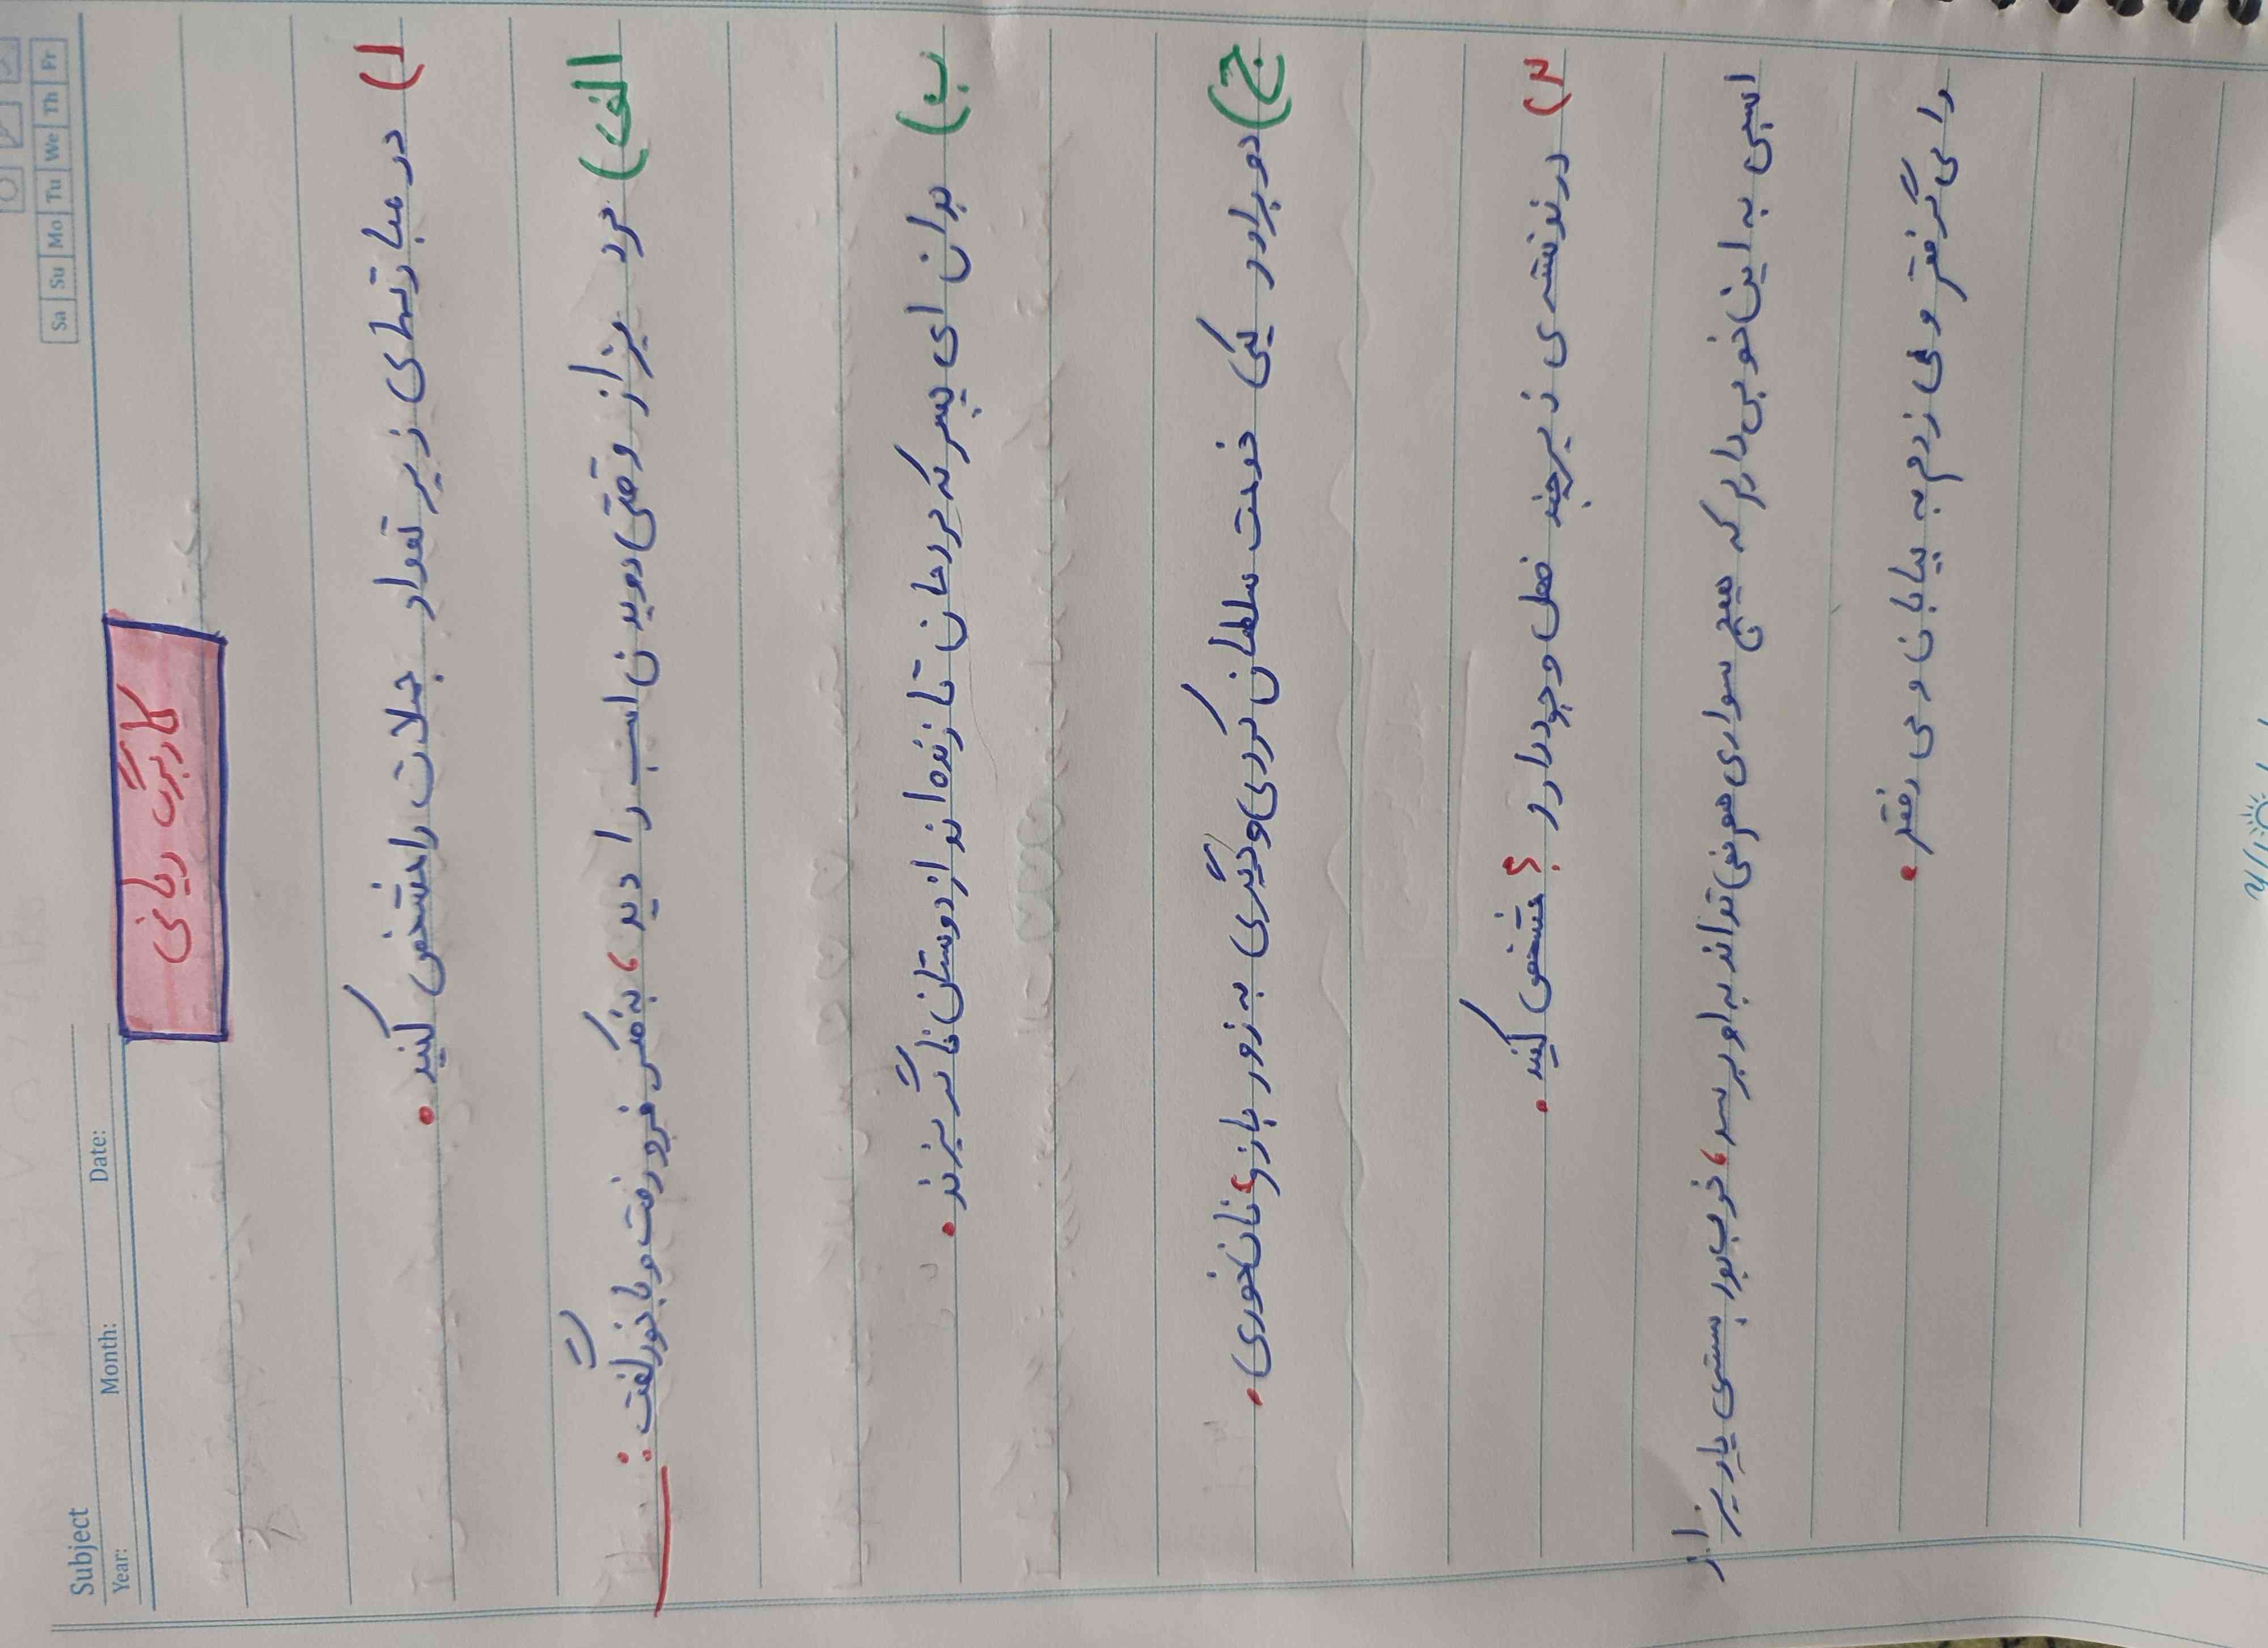 Subject
Year: Month: Date:
Sa Su Mo Tu We Th Fr
کاربرگ زبانی
۱) در عبارتهای زیر تعداد جملات را مشخص کنید.
الف) مرد بزاز وقتی دویدن اسب را دید، به فکر فرو رفت و با خود گفت:
ب) بدان ای پسر که مردمان تا زنده‌اند از دوستان ناگزیرند.
ج) دو برادر یکی خدمت سلطان کردی و دیگری به زور بازو، نان خوردی.
۲) در نوشته‌ی زیر چند فعل وجود دارد؟ مشخص کنید.
اسبی به این خوبی دارم که هیچ سواری هم نمی‌تواند به او برسد، خوب بود بسته‌ی پارچه‌ی بزاز
را می‌گرفتم و می‌زدم به بیابان و می‌رفتم.